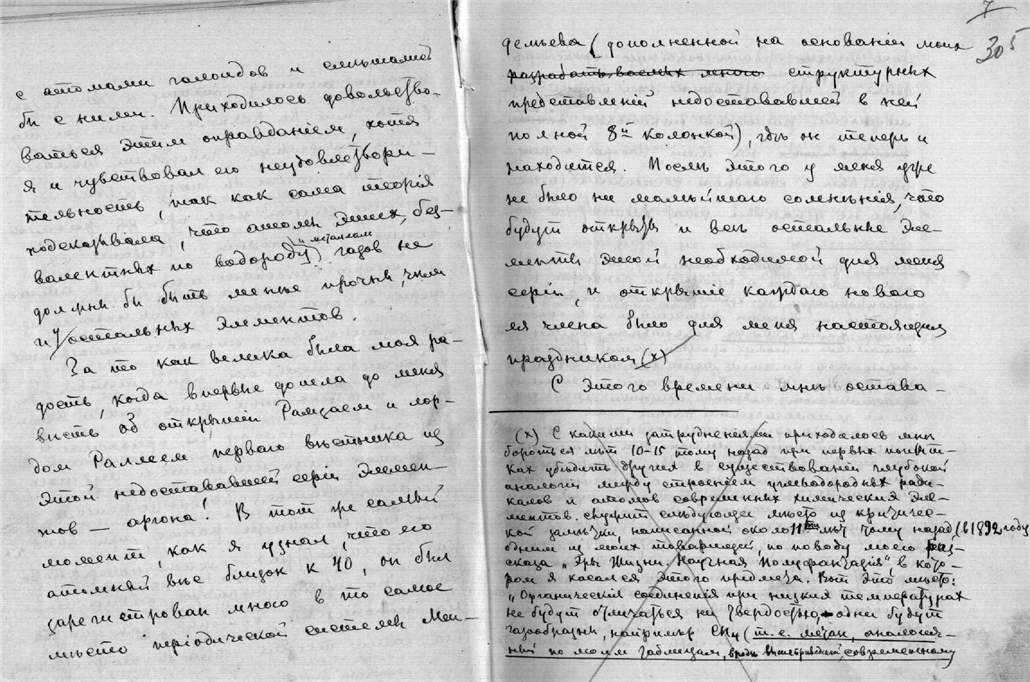 с атомами галоидов и слипшамися
бы с ними. Приходилось довольство-
ваться этим оправданіем, хотя
я и чувствовал его неудовлетвори-
тельность, так как сама теорія
подсказывала, что атомы этих без-
валентных по водороду и металлам газов не
должны бы быть менѣе прочны, чем
и у остальных элементов.
За то как велика была моя ра-
дость, когда впервые дошла до меня
вѣсть об открытіи Рамзаем и лор-
дом Ралеем перваго вѣстника из
этой недостававшей серіи элемен-
тов — аргона! В тот же самый
момент, как я узнал, что его
атомный вѣс близок к 40, он был
зарегистрован мною в то самое
мѣсто періодической системы Мен-
7
30 5
делѣева (дополненной на основаніи моих
разработываемых мною структурных
представленій недостававшей в ней
полной 8й колонкой), гдѣ он теперь и
находится. Послѣ этого у меня уже
не было ни малѣйшаго сомнѣнія, что
будут открыты и всѣ остальные эле-
менты этой необходимой для меня
серіи, и открытіе каждаго новаго
ея члена было для меня настоящим
праздником (x)
С этого времени мнѣ остава-
(x) С какими затрудненіями приходилось мнѣ
бороться лѣт 10-15 тому назад при первых попыт-
ках убѣдить других в существованіи глубокой
аналогіи между строеніем углеводородных ради-
калов и атомов современных химических эле-
ментов, служит слѣдующее мѣсто из критичес-
кой замѣтки, написанной около 11ти лѣт тому назад (в 1892 году
одним из моих товарищей, по поводу моего раз-
сказа „Эры Жизни. Научная Полуфантазія" в кото-
ром я касался этого предмета. Вот это мѣсто:
„Органическія соединенія при низких температурах
не будут отличаться ни твердостью, одни будут
газообразны, напримѣр CH4 (т. е. метан, аналогич-
ный по моим таблицам, современному